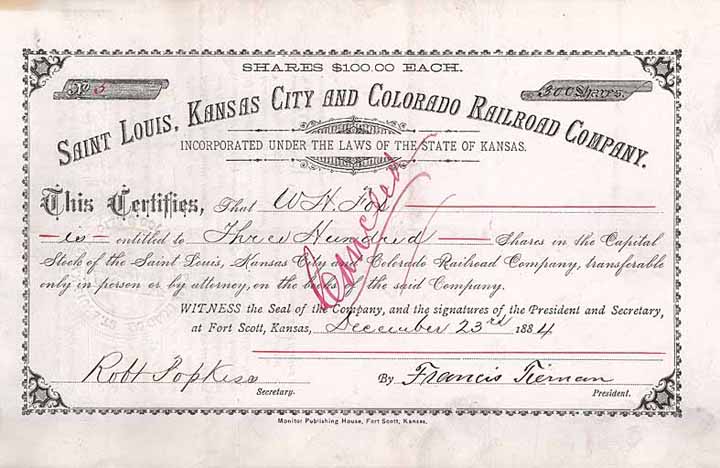 SHARES $100.00 EACH.
No 5
300 Shares.
SAINT LOUIS, KANSAS CITY AND COLORADO RAILROAD COMPANY.
INCORPORATED UNDER THE LAWS OF THE STATE OF KANSAS.
This Certifies, That W. H. Fox
is entitled to Three Hundred Shares in the Capital
Stock of the Saint Louis, Kansas City and Colorado Railroad Company, transferable
only in person or by attorney, on the books of the said Company.
Canceled
WITNESS the Seal of the Company, and the signatures of the President and Secretary,
at Fort Scott, Kansas, December 23rd 1884
Robt
Secretary.
By Francis Tiernan
President.
Monitor Publishing House, Fort Scott, Kansas.